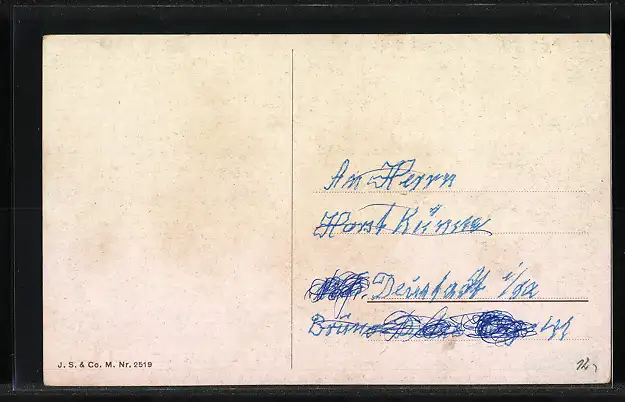 An Herrn
Horst Künze
Neustadt i/Sa
J. S. & Co. M. Nr. 2519
12,